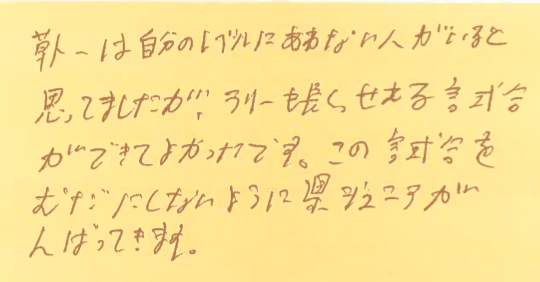 は自分のレベルにあわない人がいると
思ってましたが、ラリーも長くせれる試合
ができてよかったです。この試合を
むだにしないように県ジュニアが
んばってきます。